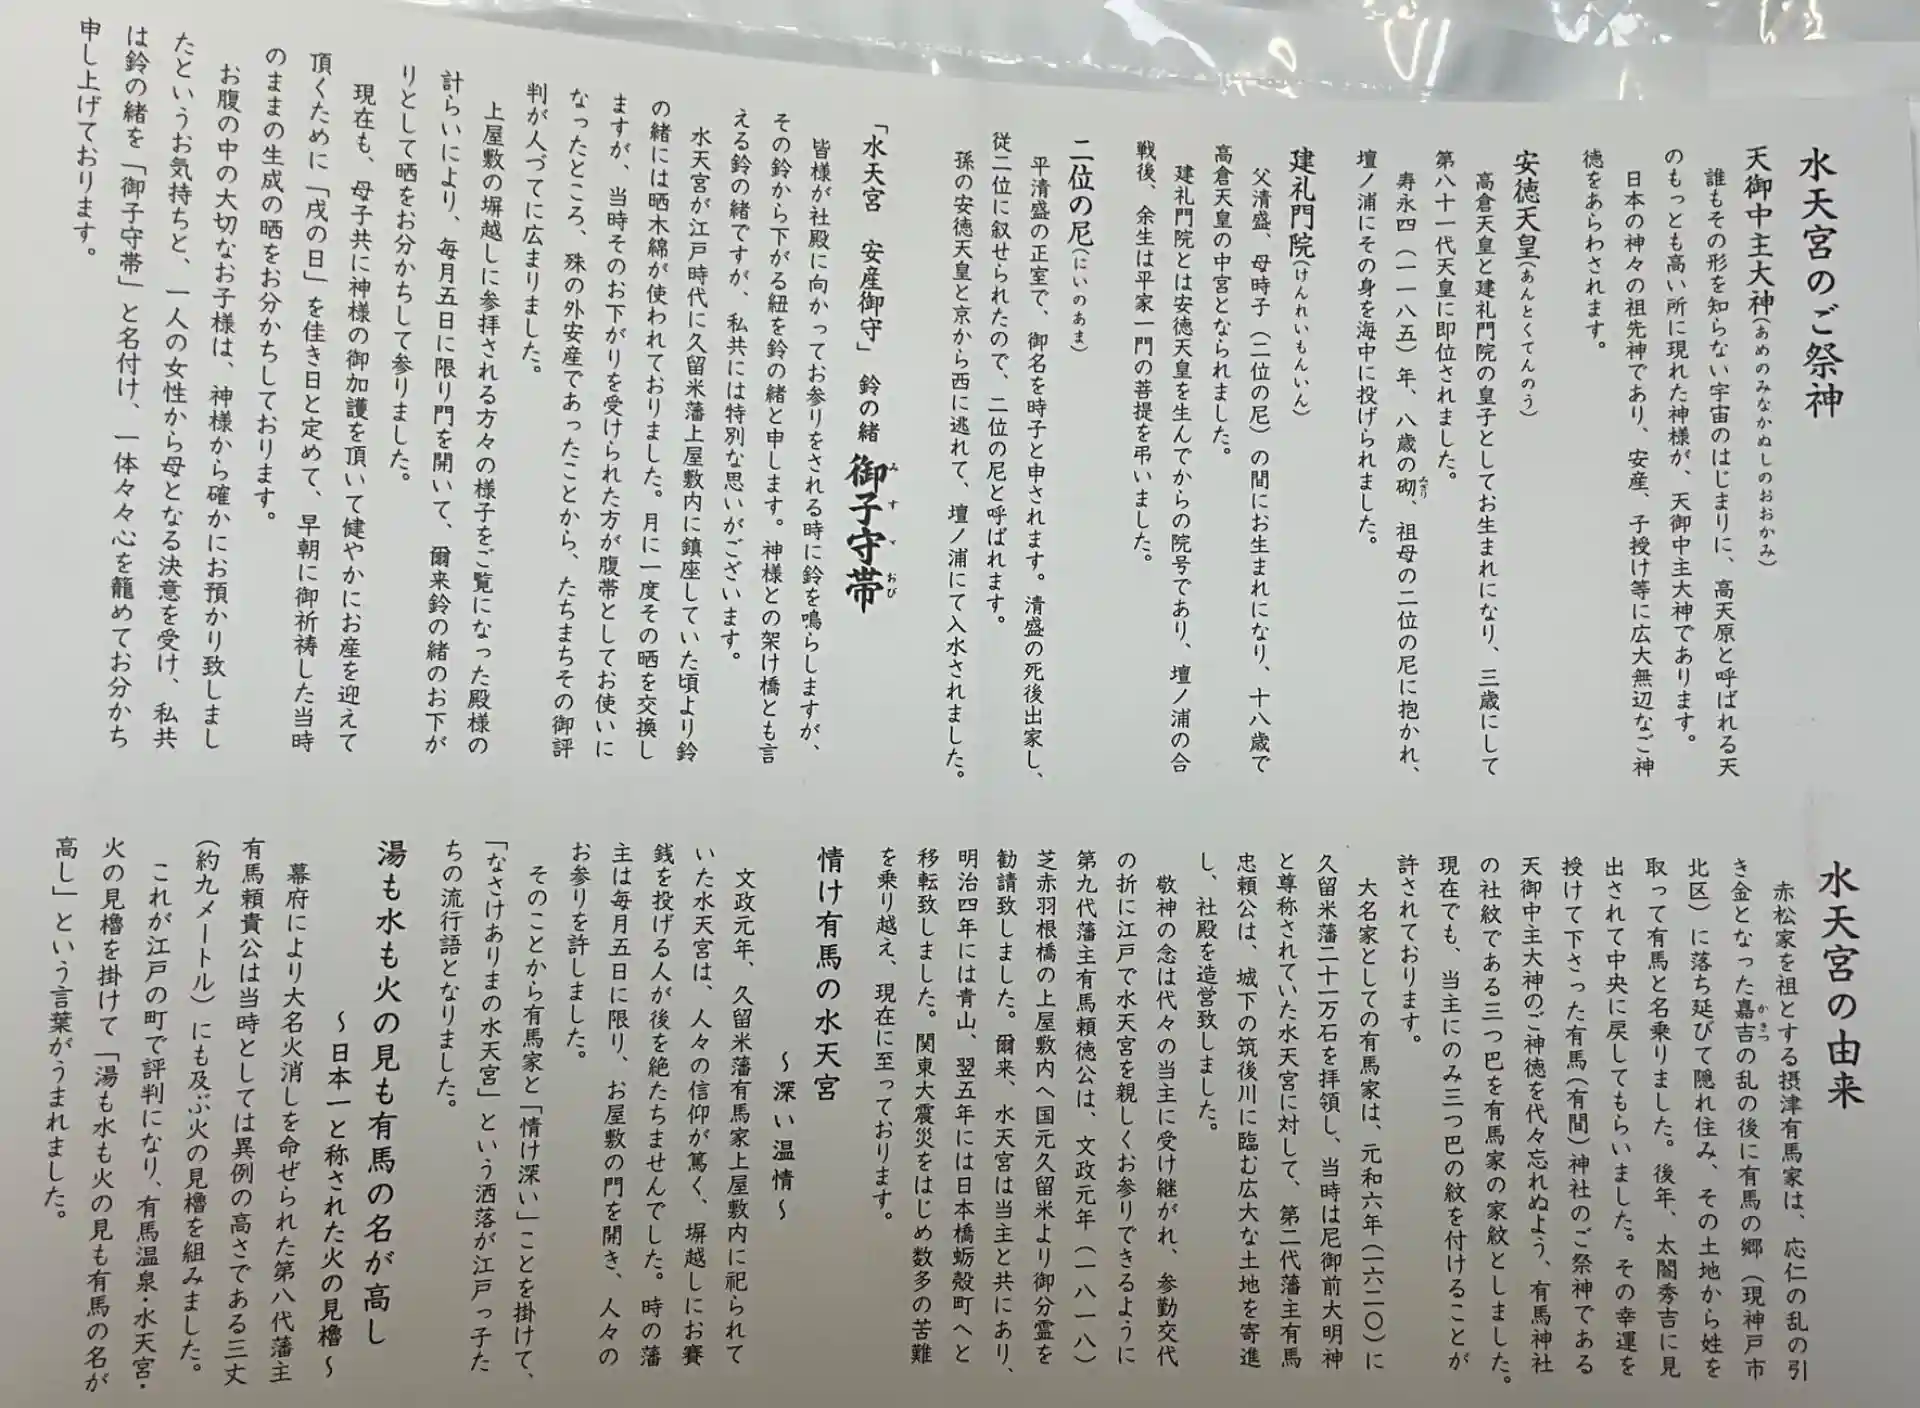 水天宮のご祭神
天御中主大神(あめのみなかぬしのおおかみ)
誰もその形を知らない宇宙のはじまりに、高天原と呼ばれる天
のもっとも高い所に現れた神様が、天御中主大神であります。
日本の神々の祖先神であり、安産、子授け等に広大無辺なご神
徳をあらわされます。
安徳天皇(あんとくてんのう)
高倉天皇と建礼門院の皇子としてお生まれになり、三歳にして
第八十一代天皇に即位されました。
寿永四(一一八五)年、八歳の砌、祖母の二位の尼に抱かれ、
みぎり
壇ノ浦にその身を海中に投げられました。
建礼門院(けんれいもんいん)
父清盛、母時子(二位の尼)の間にお生まれになり、十八歳で
高倉天皇の中宮となられました。
建礼門院とは安徳天皇を生んでからの院号であり、壇ノ浦の合
戦後、余生は平家一門の菩提を弔いました。
二位の尼(にいのあま)
平清盛の正室で、御名を時子と申されます。清盛の死後出家し、
従二位に叙せられたので、二位の尼と呼ばれます。
孫の安徳天皇と京から西に逃れて、壇ノ浦にて入水されました。
「水天宮 安産御守」鈴の緒 御子守帯
みすずおび
皆様が社殿に向かってお参りをされる時に鈴を鳴らしますが、
その鈴から下がる紐を鈴の緒と申します。神様との架け橋とも言
える鈴の緒ですが、私共には特別な思いがございます。
水天宮が江戸時代に久留米藩上屋敷内に鎮座していた頃より鈴
の緒には晒木綿が使われておりました。月に一度その晒を交換し
ますが、当時そのお下がりを受けられた方が腹帯としてお使いに
なったところ、殊の外安産であったことから、たちまちその御評
判が人づてに広まりました。
上屋敷の塀越しに参拝される方々の様子をご覧になった殿様の
計らいにより、毎月五日に限り門を開いて、爾来鈴の緒のお下が
りとして晒をお分かちして参りました。
現在も、母子共に神様の御加護を頂いて健やかにお産を迎えて
頂くために「戌の日」を佳き日と定めて、早朝に御祈祷した当時
のままの生成の晒をお分かちしております。
お腹の中の大切なお子様は、神様から確かにお預かり致しまし
たというお気持ちと、一人の女性から母となる決意を受け、私共
は鈴の緒を「御子守帯」と名付け、一体々々心を籠めてお分かち
申し上げております。
水天宮の由来
赤松家を祖とする摂津有馬家は、応仁の乱の引
き金となった嘉吉の乱の後に有馬の郷(現神戸市
かきつ
北区)に落ち延びて隠れ住み、その土地から姓を
取って有馬と名乗りました。後年、太閤秀吉に見
出されて中央に戻してもらいました。その幸運を
授けて下さった有馬(有間)神社のご祭神である
天御中主大神のご神徳を代々忘れぬよう、有馬神社
の社紋である三つ巴を有馬家の家紋としました。
現在でも、当主にのみ三つ巴の紋を付けることが
許されております。
大名家としての有馬家は、元和六年(一六二〇)に
久留米藩二十一万石を拝領し、当時は尼御前大明神
と尊称されていた水天宮に対して、第二代藩主有馬
忠頼公は、城下の筑後川に臨む広大な土地を寄進
し、社殿を造営致しました。
敬神の念は代々の当主に受け継がれ、参勤交代
の折に江戸で水天宮を親しくお参りできるように
第九代藩主有馬頼徳公は、文政元年(一八一八)
芝赤羽根橋の上屋敷内へ国元久留米より御分霊を
勧請致しました。爾来、水天宮は当主と共にあり、
明治四年には青山、翌五年には日本橋蛎殻町へと
移転致しました。関東大震災をはじめ数多の苦難
を乗り越え、現在に至っております。
情け有馬の水天宮
～深い温情～
文政元年、久留米藩有馬家上屋敷内に祀られて
いた水天宮は、人々の信仰が篤く、塀越しにお賽
銭を投げる人が後を絶たちませんでした。時の藩
主は毎月五日に限り、お屋敷の門を開き、人々の
お参りを許しました。
そのことから有馬家と「情け深い」ことを掛けて、
「なさけありまの水天宮」という洒落が江戸っ子た
ちの流行語となりました。
湯も水も火の見も有馬の名が高し
～日本一と称された火の見櫓～
幕府により大名火消しを命ぜられた第八代藩主
有馬頼貴公は当時としては異例の高さである三丈
(約九メートル)にも及ぶ火の見櫓を組みました。
これが江戸の町で評判になり、有馬温泉・水天宮・
火の見櫓を掛けて「湯も水も火の見も有馬の名が
高し」という言葉がうまれました。